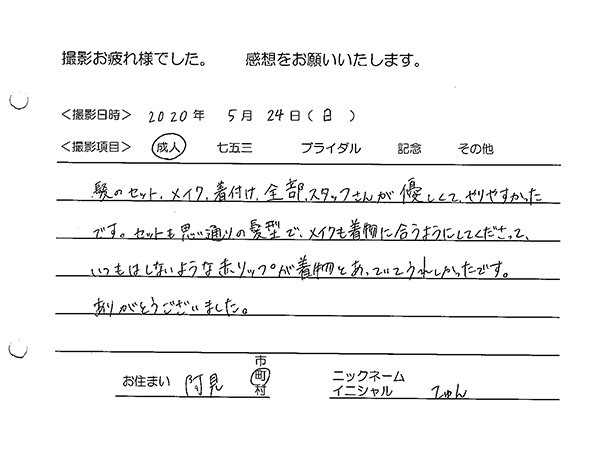 撮影お疲れ様でした。 感想をお願いいたします。
＜撮影日時＞ 2020年 5月 24日(日)
＜撮影項目＞ 成人 七五三 ブライダル 記念 その他
髪のセット、メイク、着付け、全部、スタッフさんが優しくて、やりやすかった
です。セットも思い通りの髪型で、メイクも着物に合うようにしてくださって、
いつもはしないような赤リップが着物とあっていてうれしかったです。
ありがとうございました。
お住まい 阿見 市町村
ニックネーム
イニシャル てゅん